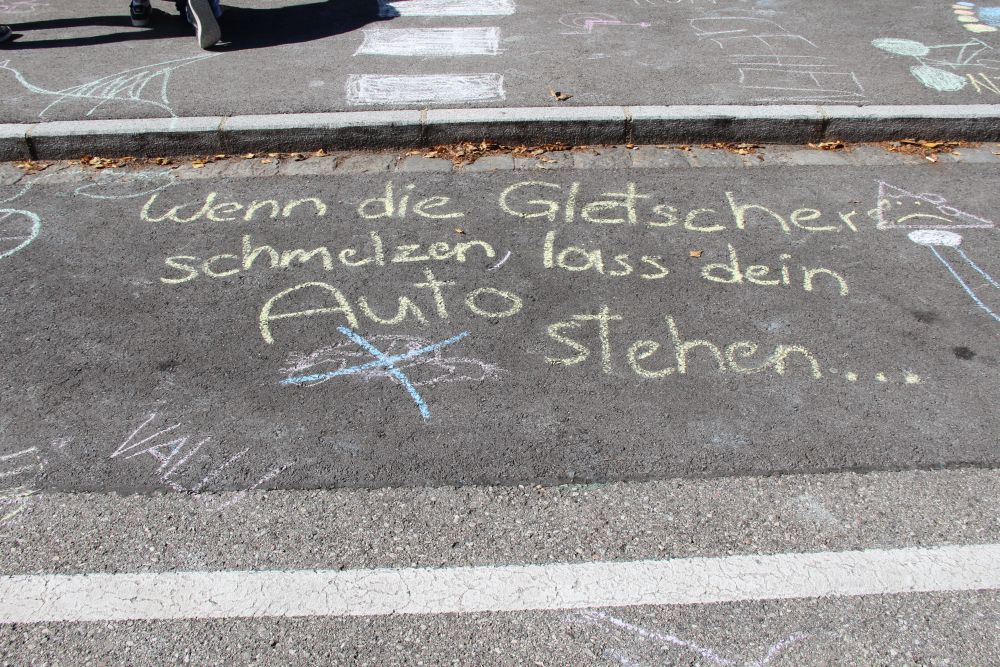 Wenn die Gletscher
schmelzen, lass dein
Auto stehen....
VALLE